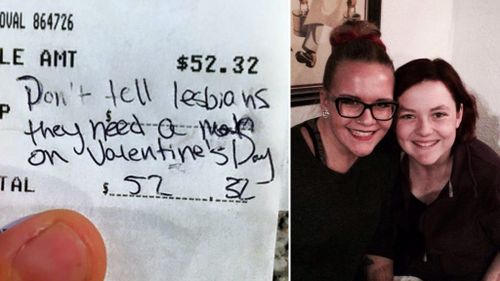 OVAL 864726
LE AMT $52.32
Don't tell lesbians
P they need a man
on Valentine's Day
TAL $ 52 32